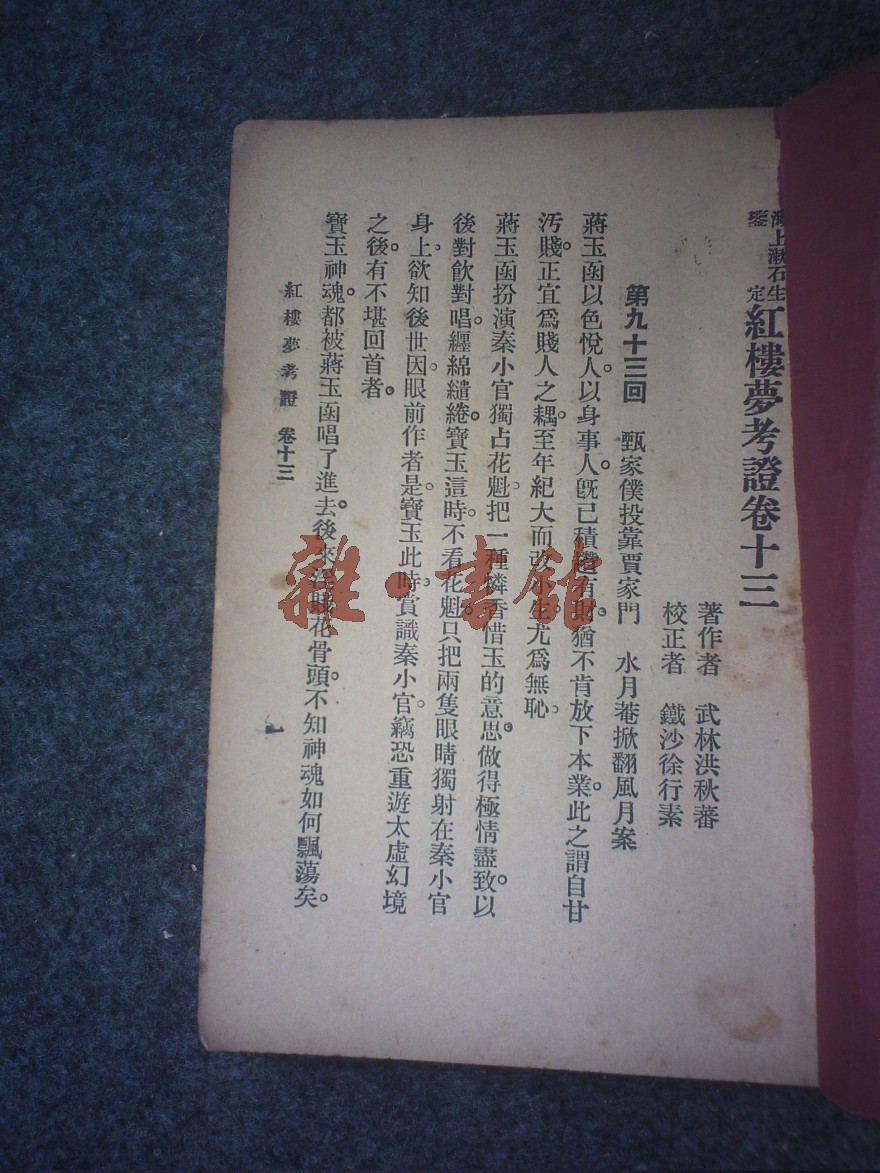 海上漱石生鑒定紅樓夢考證卷十三
著作者 武林洪秋蕃
校正者 鐵沙徐行素
第九十三回 甄家僕投靠賈家門 水月菴掀翻風月案
蔣玉函以色悅人。以身事人。旣已積有財。猶不肯放下本業。此之謂自甘
汚賤。正宜爲賤人之耦。至年紀大而改小生。尤爲無恥。
蔣玉函扮演秦小官獨占花魁。把一種憐香惜玉的意思。做得極情盡致。以
後對飲對唱。纏綿繾綣。寶玉這時不看花魁。只把兩隻眼睛獨射在秦小官
身上。欲知後世因。眼前作者是。寶玉此時賞識秦小官。竊恐重遊太虛幻境
之後。有不堪回首者。
寶玉神魂。都被蔣玉函唱了進去。後來花骨頭。不知神魂如何飄蕩矣。
紅樓夢考證 卷十三
一
雜·書館